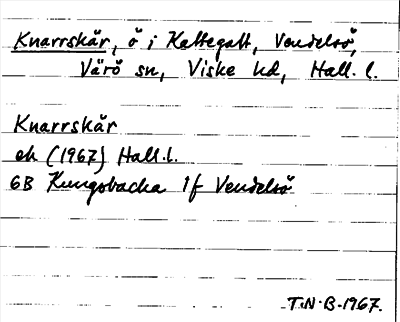 Knarrskär, ö i Kattegatt, Vendelsö,
Värö sn, Viske hd, Hall. l.
Knarrskär
ek (1967) Hall. l.
6B Kungsbacka 1f Vendelsö
T.N.B. 1967.